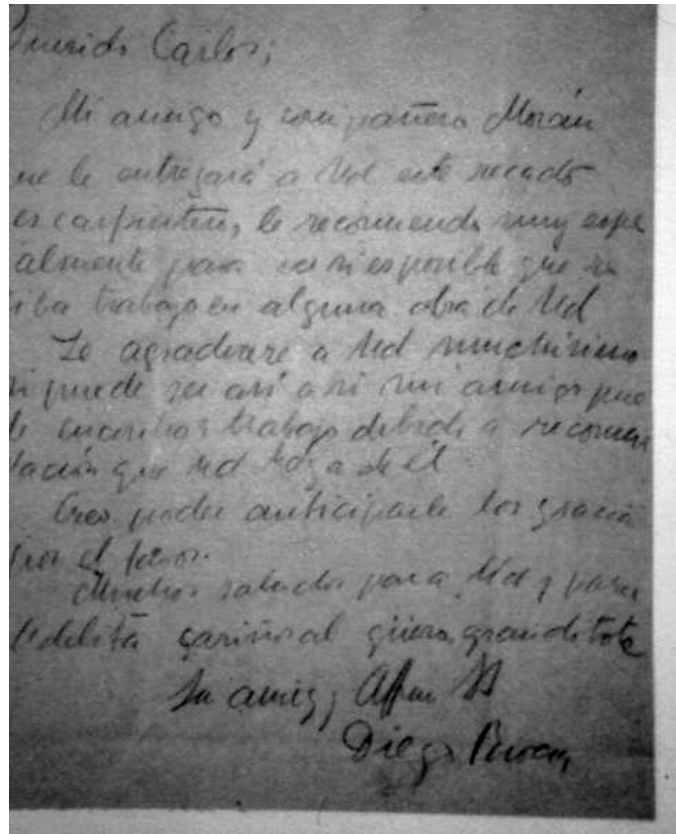 Querido Carlos;
Mi amigo y compañero Morán
ue le entregará a Ud este recado
es carpintero, le recomiendo muy espe
ialmente para ver si es posible que re
iba trabajo en alguna obra de Ud
Le agradecere a Ud muchisimo
si puede ser así o si mi amigo pue
de encontrar trabajo debido a recomen
dación que Ud haga de él
Creo poder anticiparle las gracias
por el favor.
Muchos saludos para Ud y para
cariños al güero granditote
Su amigo, Affmo SS
Diego Rivera